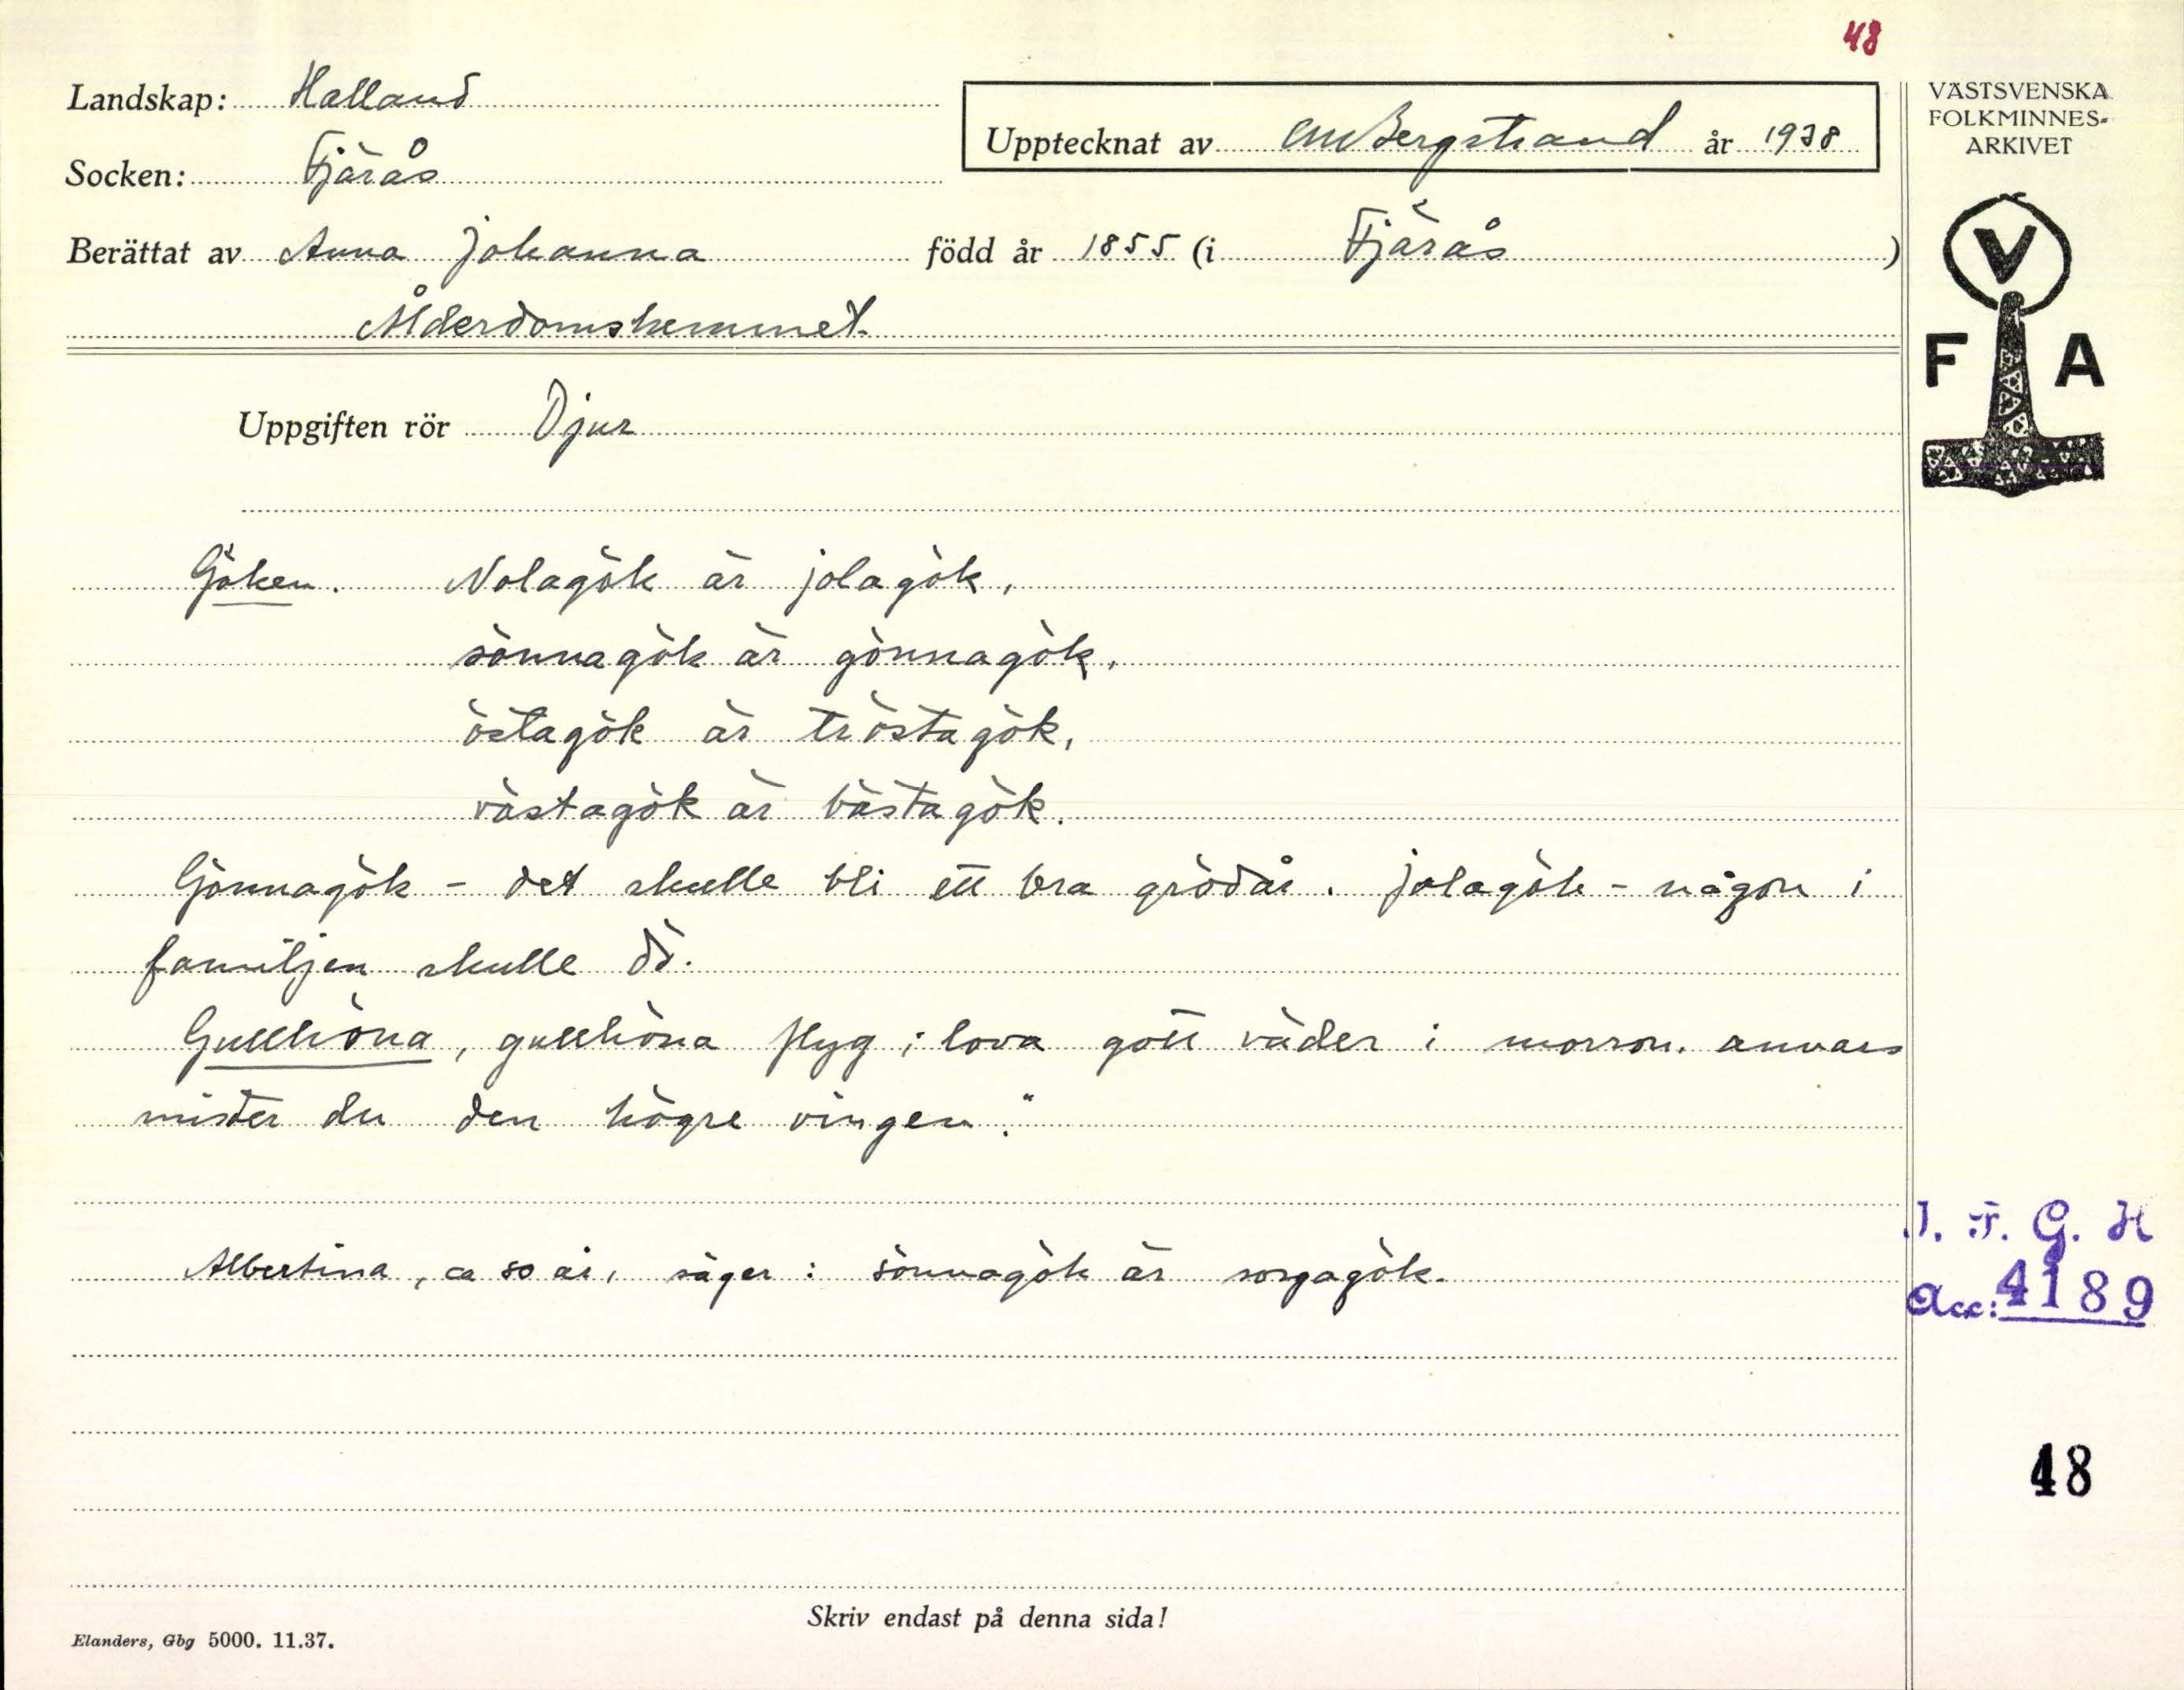 48
Landskap: Halland
Socken: Fjärås
Upptecknat av CM Bergstrand år 1938
Berättat av Anna Johanna född år 1855 (i Fjärås)
Ålderdomshemmet.
VÄSTSVENSKA
FOLKMINNES-
ARKIVET
V
F A
Uppgiften rör Djur
Göken. Nolagök är jolagök,
sönnagök är gönnagök,
östagök är tröstagök,
västagök är bästagök.
Gönnagök - det skulle bli ett bra grödår. jolagök - någon i
familjen skulle dö.
Gullhöna, gullhöna flyg; lova gott väder i morron. annars
mister du den högre vingen."
Albertina, ca 80 år, säger: sönnagök är sorgagök.
I. F. G. H
Acc: 4189
48
Skriv endast på denna sida!
Elanders, Gbg 5000. 11.37.